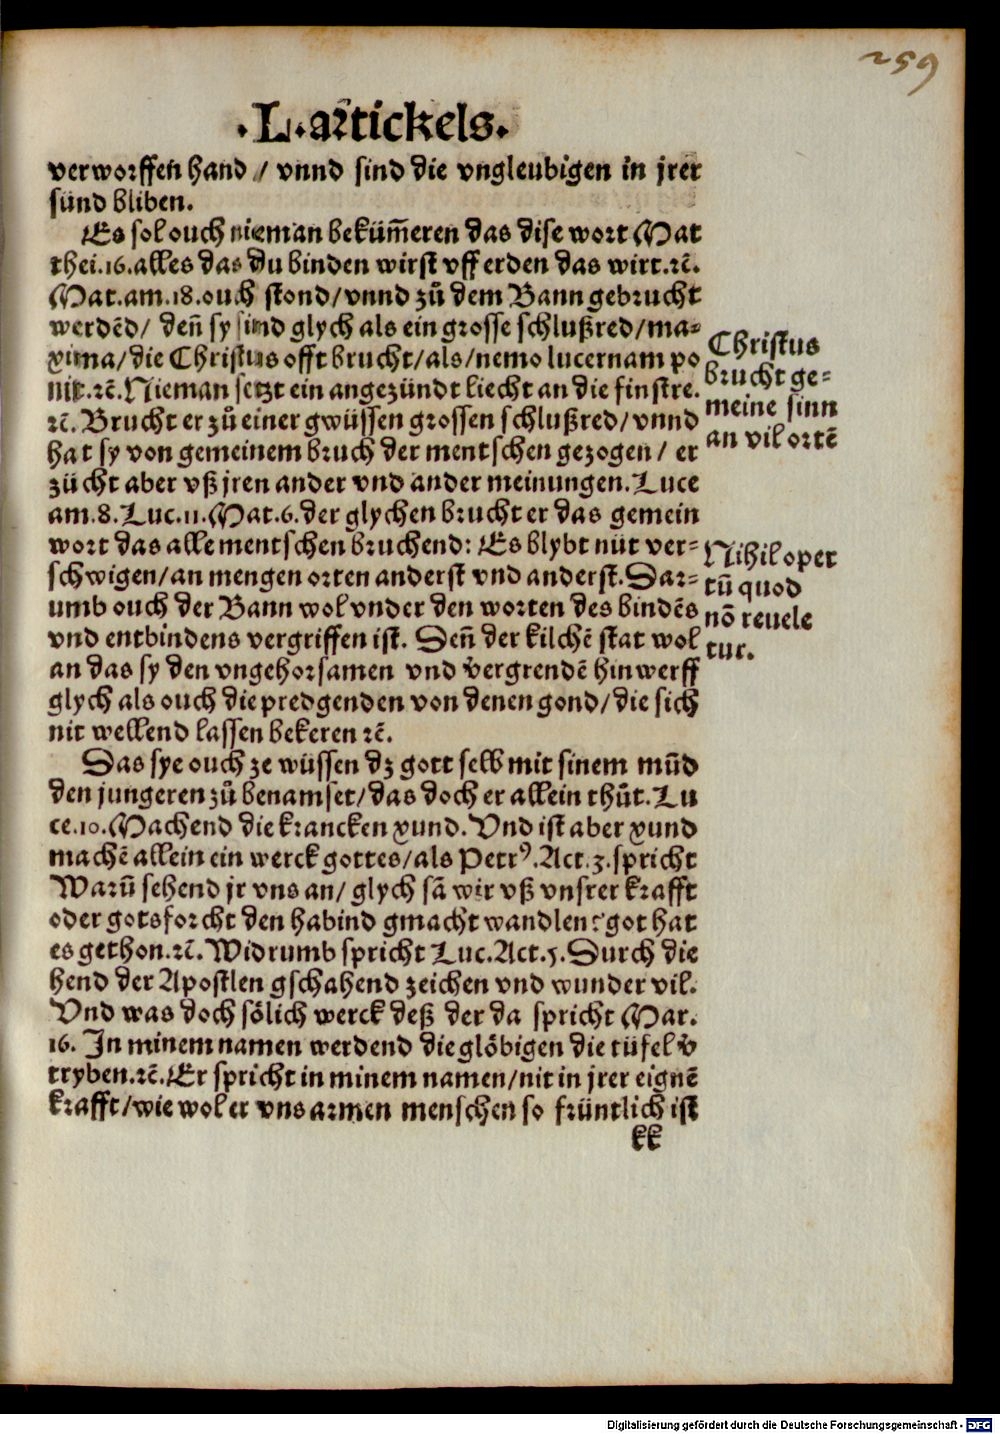 259
.L.artickels.
verworffen hand / vnnd sind die vngleubigen in jrer
sünd bliben.
Es sol ouch nieman bekümeren das dise wort Mat
thei.16.alles das du binden wirst vff erden das wirt.rc̄.
Mat.am.18.ouch stond/vnnd zů dem Bann gebrucht
werdēd/ den̄ sy sind glych als ein grosse schlußred/ma=
xima/die Christus offt brucht/als/nemo lucernam po
nit.rc̄.Nieman setzt ein angezündt liecht an die finstre.
rc̄. Brucht er zů einer gwüssen grossen schlußred/vnnd
hat sy von gemeinem bruch der mentschen gezogen/ er
zücht aber vß jren ander vnd ander meinungen.Luce
am.8.Luc.11.Mat.6.der glychen brucht er das gemein
wort das alle mentschen bruchend: Es blybt nüt ver=
schwigen/an mengen orten anderst vnd anderst.Dar=
umb ouch der Bann wol vnder den worten des bindēs
vnd entbindens vergriffen ist. Den̄ der kilchē stat wol
an das sy den vngehorsamen vnd v̄ergrendē hinwerff
glych als ouch die predgenden von denen gond/die sich
nit wellend lassen bekeren rc̄.
Das sye ouch ze wüssen dz gott selb mit sinem mūd
den jungeren zů benamset/das doch er allein thůt.Lu
ce.10.Machend die krancken xund.Vnd ist aber xund
machē allein ein werck gottes/als Petrꝰ.Act.3.spricht
Warū sehend jr vns an/ glych sā wir vß vnsrer krafft
oder gotsforcht den habind gmacht wandlen? got hat
es gethon.rc̄. Widrumb spricht Luc.Act.5.Durch die
hend der Apostlen gschahend zeichen vnd wunder vil.
Vnd was doch sölich werck deß der da spricht Mar.
16. In minem namen werdend die glöbigen die tüfel v̄
tryben.rc̄.Er spricht in minem namen/nit in jrer eignē
krafft/wie wol er vns armen menschen so früntlich ist
kk
Christus
brucht ge=
meine sinn
an vil ortē
Nihil oper
tū quod
nō reuele
tur.
Digitalisierung gefördert durch die Deutsche Forschungsgemeinschaft - DFG